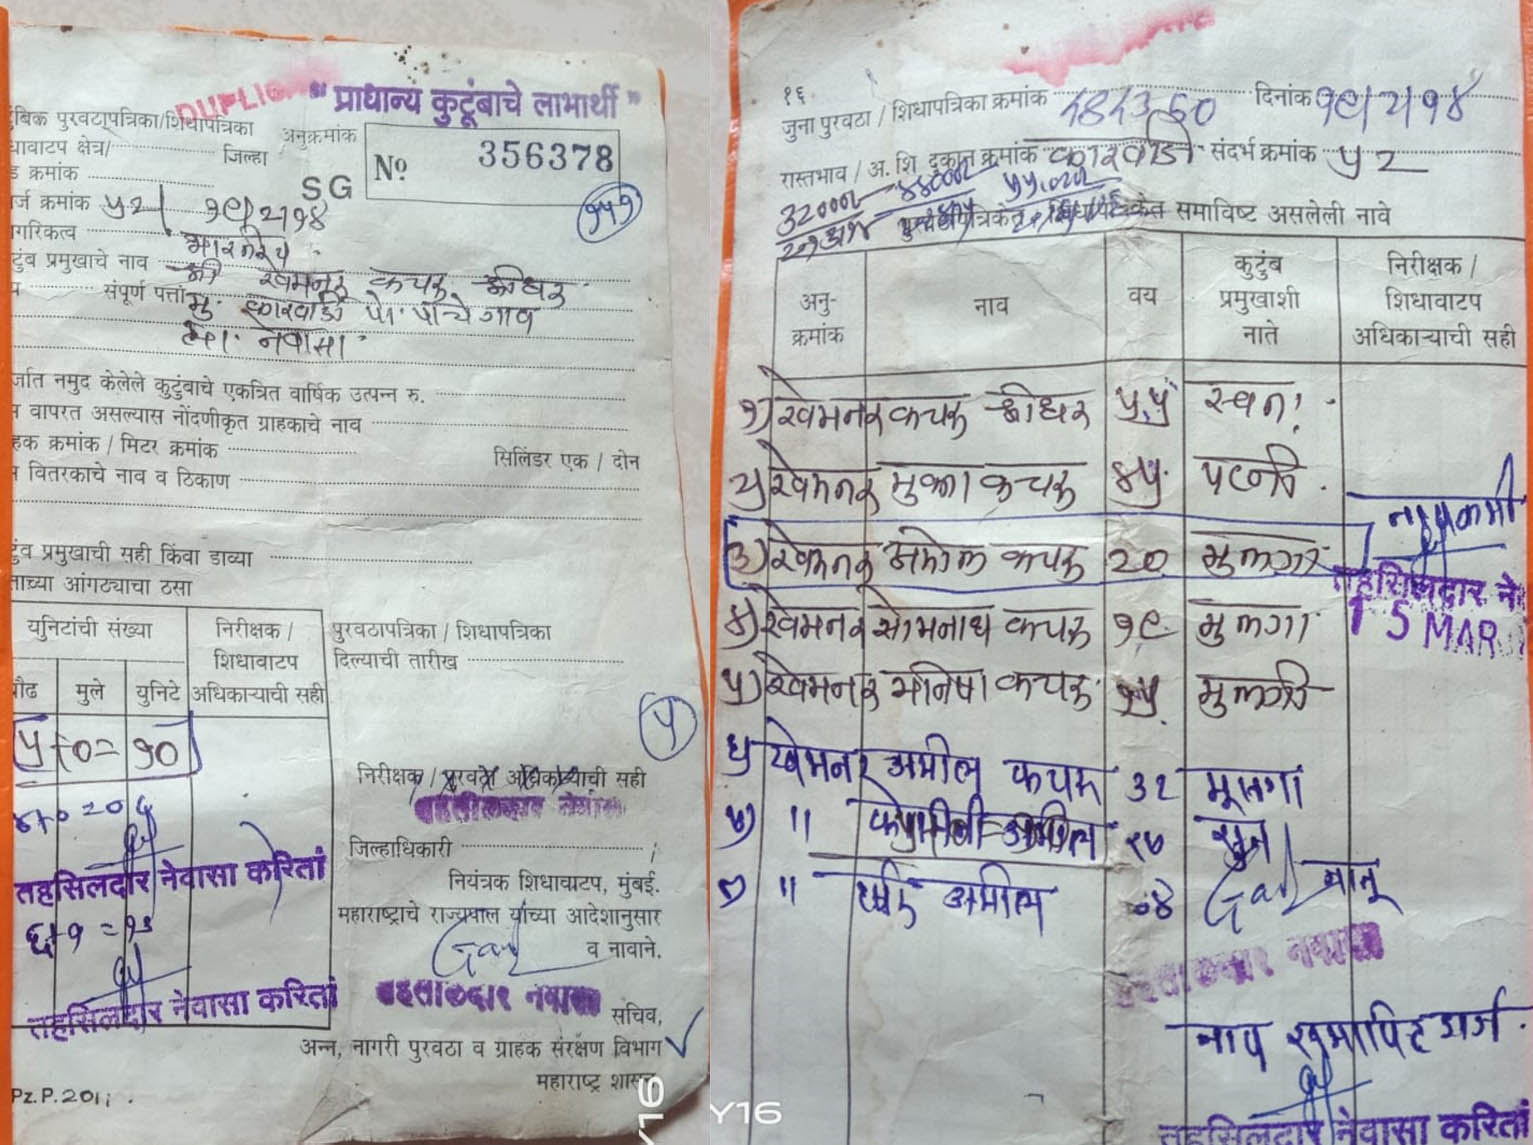 DUPLIC
" प्राधान्य कुटूंबाचे लाभार्थी "
ुंबिक पुरवठापत्रिका/शिधापत्रिका अनुक्रमांक
धावाटप क्षेत्र/ जिल्हा
Nº 356378
ड क्रमांक
SG
र्ज क्रमांक ५२ १९/२/१४
१५१
गरिकत्व भारतीय
टुंब प्रमुखाचे नाव श्री खेमनर कचरू श्रीधर
संपूर्ण पत्ता मु. कारवाडी पो. पाचेगाव
ता. नेवासा
र्जात नमुद केलेले कुटुंबाचे एकत्रित वार्षिक उत्पन्न रु.
स वापरत असल्यास नोंदणीकृत ग्राहकाचे नाव
हक क्रमांक / मिटर क्रमांक
सिलिंडर एक / दोन
स वितरकाचे नाव व ठिकाण
टुंब प्रमुखाची सही किंवा डाव्या
ताच्या आंगठ्याचा ठसा
युनिटांची संख्या
निरीक्षक /
शिधावाटप
अधिकाऱ्याची सही
पुरवठापत्रिका / शिधापत्रिका
दिल्याची तारीख
रौढ मुले युनिटे
५+०=१०
५
निरीक्षक / पुरवठा अधिकाऱ्याची सही
तहसीलदार नेवासा
जिल्हाधिकारी
तहसिलदार नेवासा करितां
नियंत्रक शिधावाटप, मुंबई.
महाराष्ट्राचे राज्यपाल यांच्या आदेशानुसार
व नावाने.
६+१=१३
तहसिलदार नेवासा करितां
तहसीलदार नेवासा
सचिव,
अन्न, नागरी पुरवठा व ग्राहक संरक्षण विभाग
महाराष्ट्र शासन
Pz.P.2011.
Y16
१६
जुना पुरवठा / शिधापत्रिका क्रमांक 484360 दिनांक १९/२/१४
रास्तभाव / अ. शि. दुकान क्रमांक कारवाडी संदर्भ क्रमांक ५२
समाविष्ट असलेली नावे
अनु-क्रमांक नाव वय कुटुंब प्रमुखाशी नाते निरीक्षक / शिधावाटप अधिकाऱ्याची सही
१) खेमनर कचरू श्रीधर ५५ स्वतः
२) खेमनर मुक्ता कचरू ४५ पत्नी
३) खेमनर अमोल कचरू 20 मुलगा नाव कमी
तहसिलदार ने
15 MAR
४) खेमनर सोमनाथ कचरू १९ मुलगा
५) खेमनर मनिषा कचरू १५ मुलगी
खेमनर अमोल कचरू ३२ मूलगा
५) " अमोल २७ सून
" अमोल ०४ नातू
तहसीलदार नेवासा
नाव समाविष्ट अर्ज
तहसिलदार नेवासा करितां
Y16